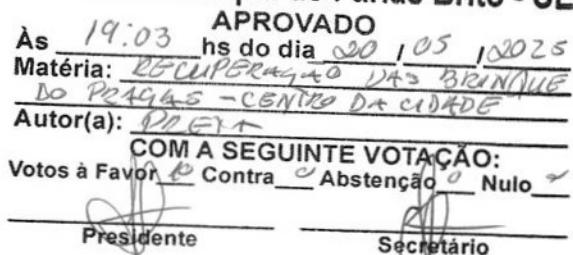 Farias Brito - CE
APROVADO
Às 19:03 hs do dia 20 / 05 / 2025
Matéria: RECUPERAÇÃO DAS BRINQUE
DO PRAÇAS - CENTRO DA CIDADE
Autor(a): PRETA
COM A SEGUINTE VOTAÇÃO:
Votos à Favor 10 Contra 0 Abstenção 0 Nulo
Presidente Secretário